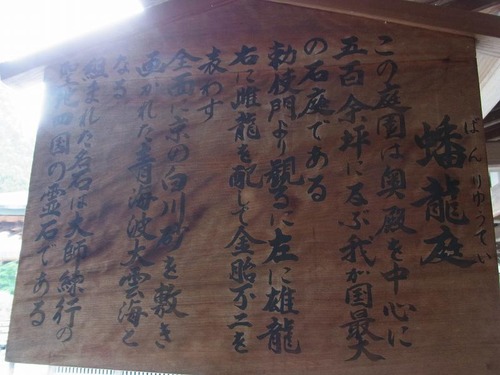 蟠龍庭
ばんりゅうてい
この庭園は奥殿を中心に
五百余坪に及ぶ我が国最大
の石庭である
勅使門より観るに左に雄龍
右に雌龍を配して金胎不二を
表わす
全面に京の白川砂を敷き
画かれた青海波大雲海と
なる
組まれた岩石は大師縁行の
聖地四国の霊石である